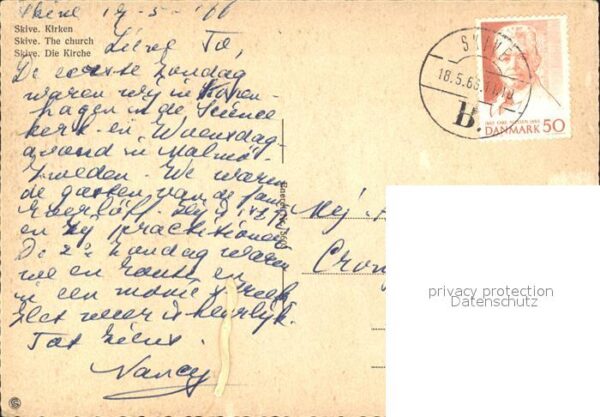 Skive 17-5-'66
Skive. Kirken
Skive. The church
Skive. Die Kirche
Lieve To,
De eerste Zondag
waren wij in Kopen-
hagen in de Science
kerk en Woensdag-
avond in Malmö-
Zweden. We waren
de gasten van de fam.
en zij practitioner
De 2e Zondag waren
we en route en
in een mooie streek
Het weer is heerlijk.
Tot ziens.
Nancy
Mej.
SKIVE
18.5.66
B.
1865 CARL NIELSEN 1965
DANMARK 50
privacy protection
Datenschutz